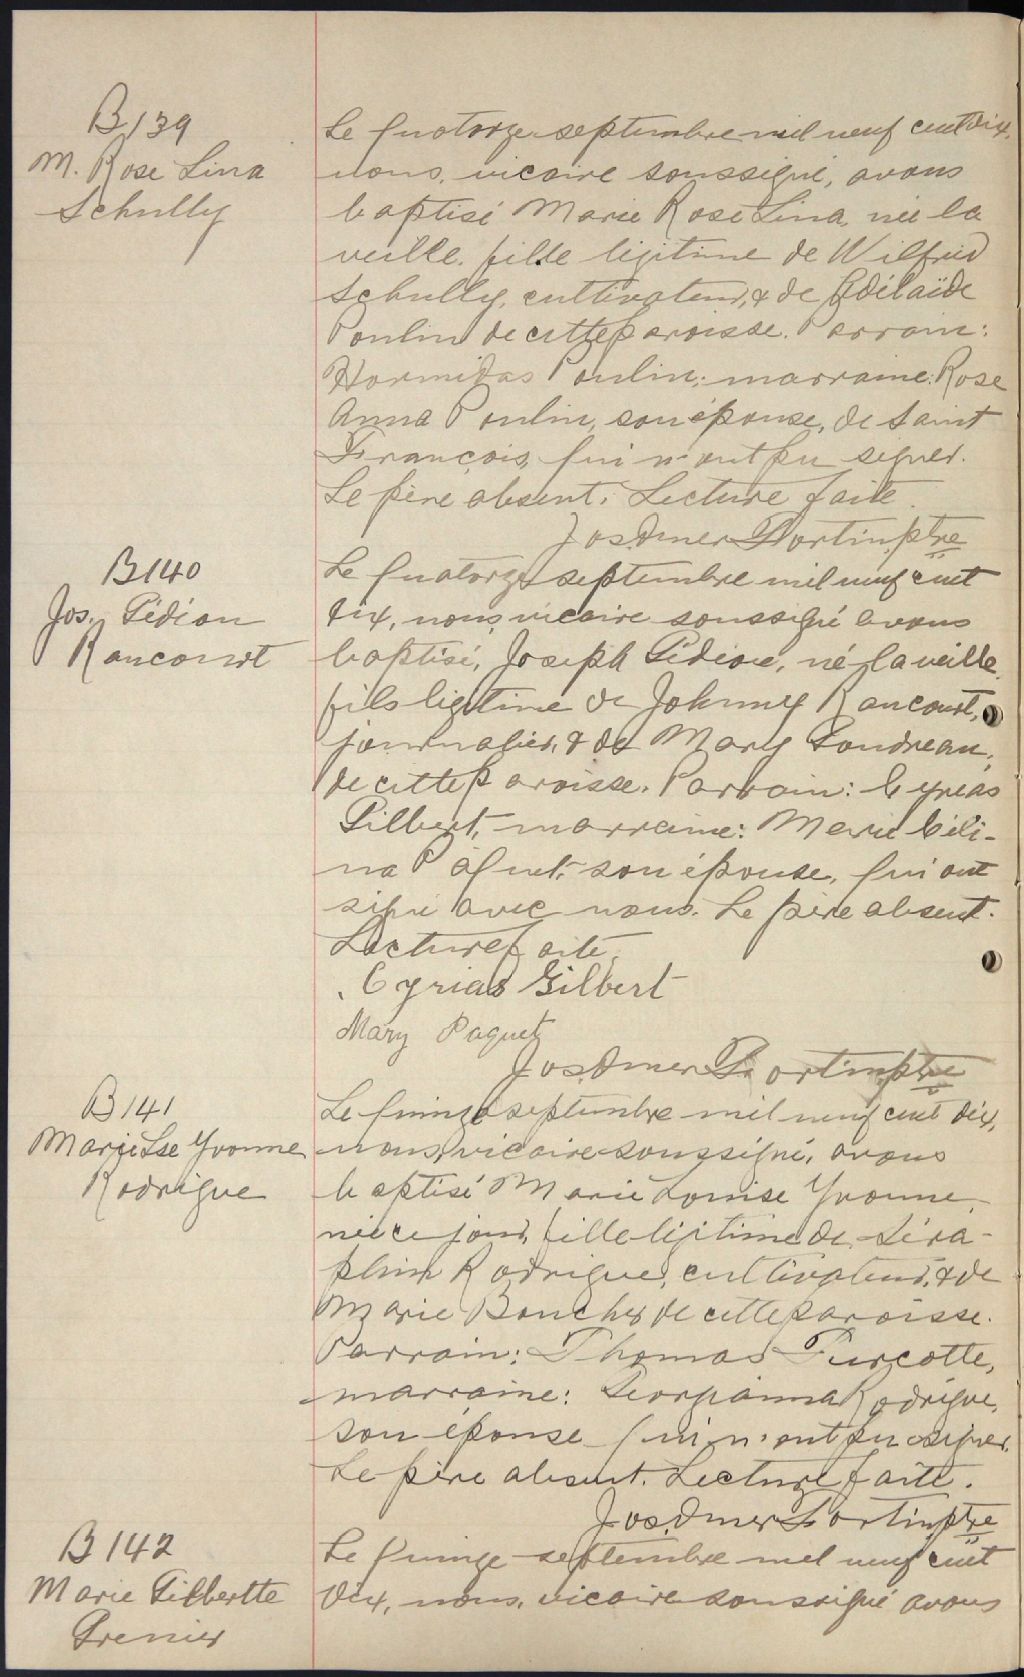 B139
M. Rose Lina
Schully
Le quatorze septembre mil neuf cent dix,
nous, vicaire soussigné, avons
baptisé Marie Rose Lina, née la
veille, fille légitime de Wilfrid
Schully, cultivateur, & de Adélaïde
Poulin de cette paroisse. Parrain:
Hormidas Poulin; marraine: Rose
Anna Poulin, son épouse, de Saint
François, qui n'ont pu signer.
Le père absent. Lecture faite.
Jos. Omer Fortin, ptre
B140
Jos. Gédéon
Rancourt
Le quatorze septembre mil neuf cent
dix, nous, vicaire soussigné avons
baptisé, Joseph Gédéon, né la veille,
fils légitime de Johnny Rancourt,
journalier, & de Mary Goudreau,
de cette paroisse. Parrain: Cyrias
Gilbert, marraine: Marie Céli-
na Paquet, son épouse, qui ont
signé avec nous. Le père absent.
Lecture faite.
Cyrias Gilbert
Mary Paquet
Jos. Omer Fortin, ptre
B141
Marie Lse Yvonne
Rodrigue
Le quinze septembre mil neuf cent dix,
nous, vicaire soussigné, avons
baptisé Marie Louise Yvonne,
née ce jour, fille légitime de Séra-
phin Rodrigue, cultivateur, & de
Marie Boucher de cette paroisse.
Parrain: Thomas Turcotte,
marraine: Georgianna Rodrigue,
son épouse qui n'ont pu signer.
Le père absent. Lecture faite.
Jos. Omer Fortin, ptre
B142
Marie Gilbertte
Grenier
Le quinze septembre mil neuf cent
dix, nous, vicaire soussigné avons